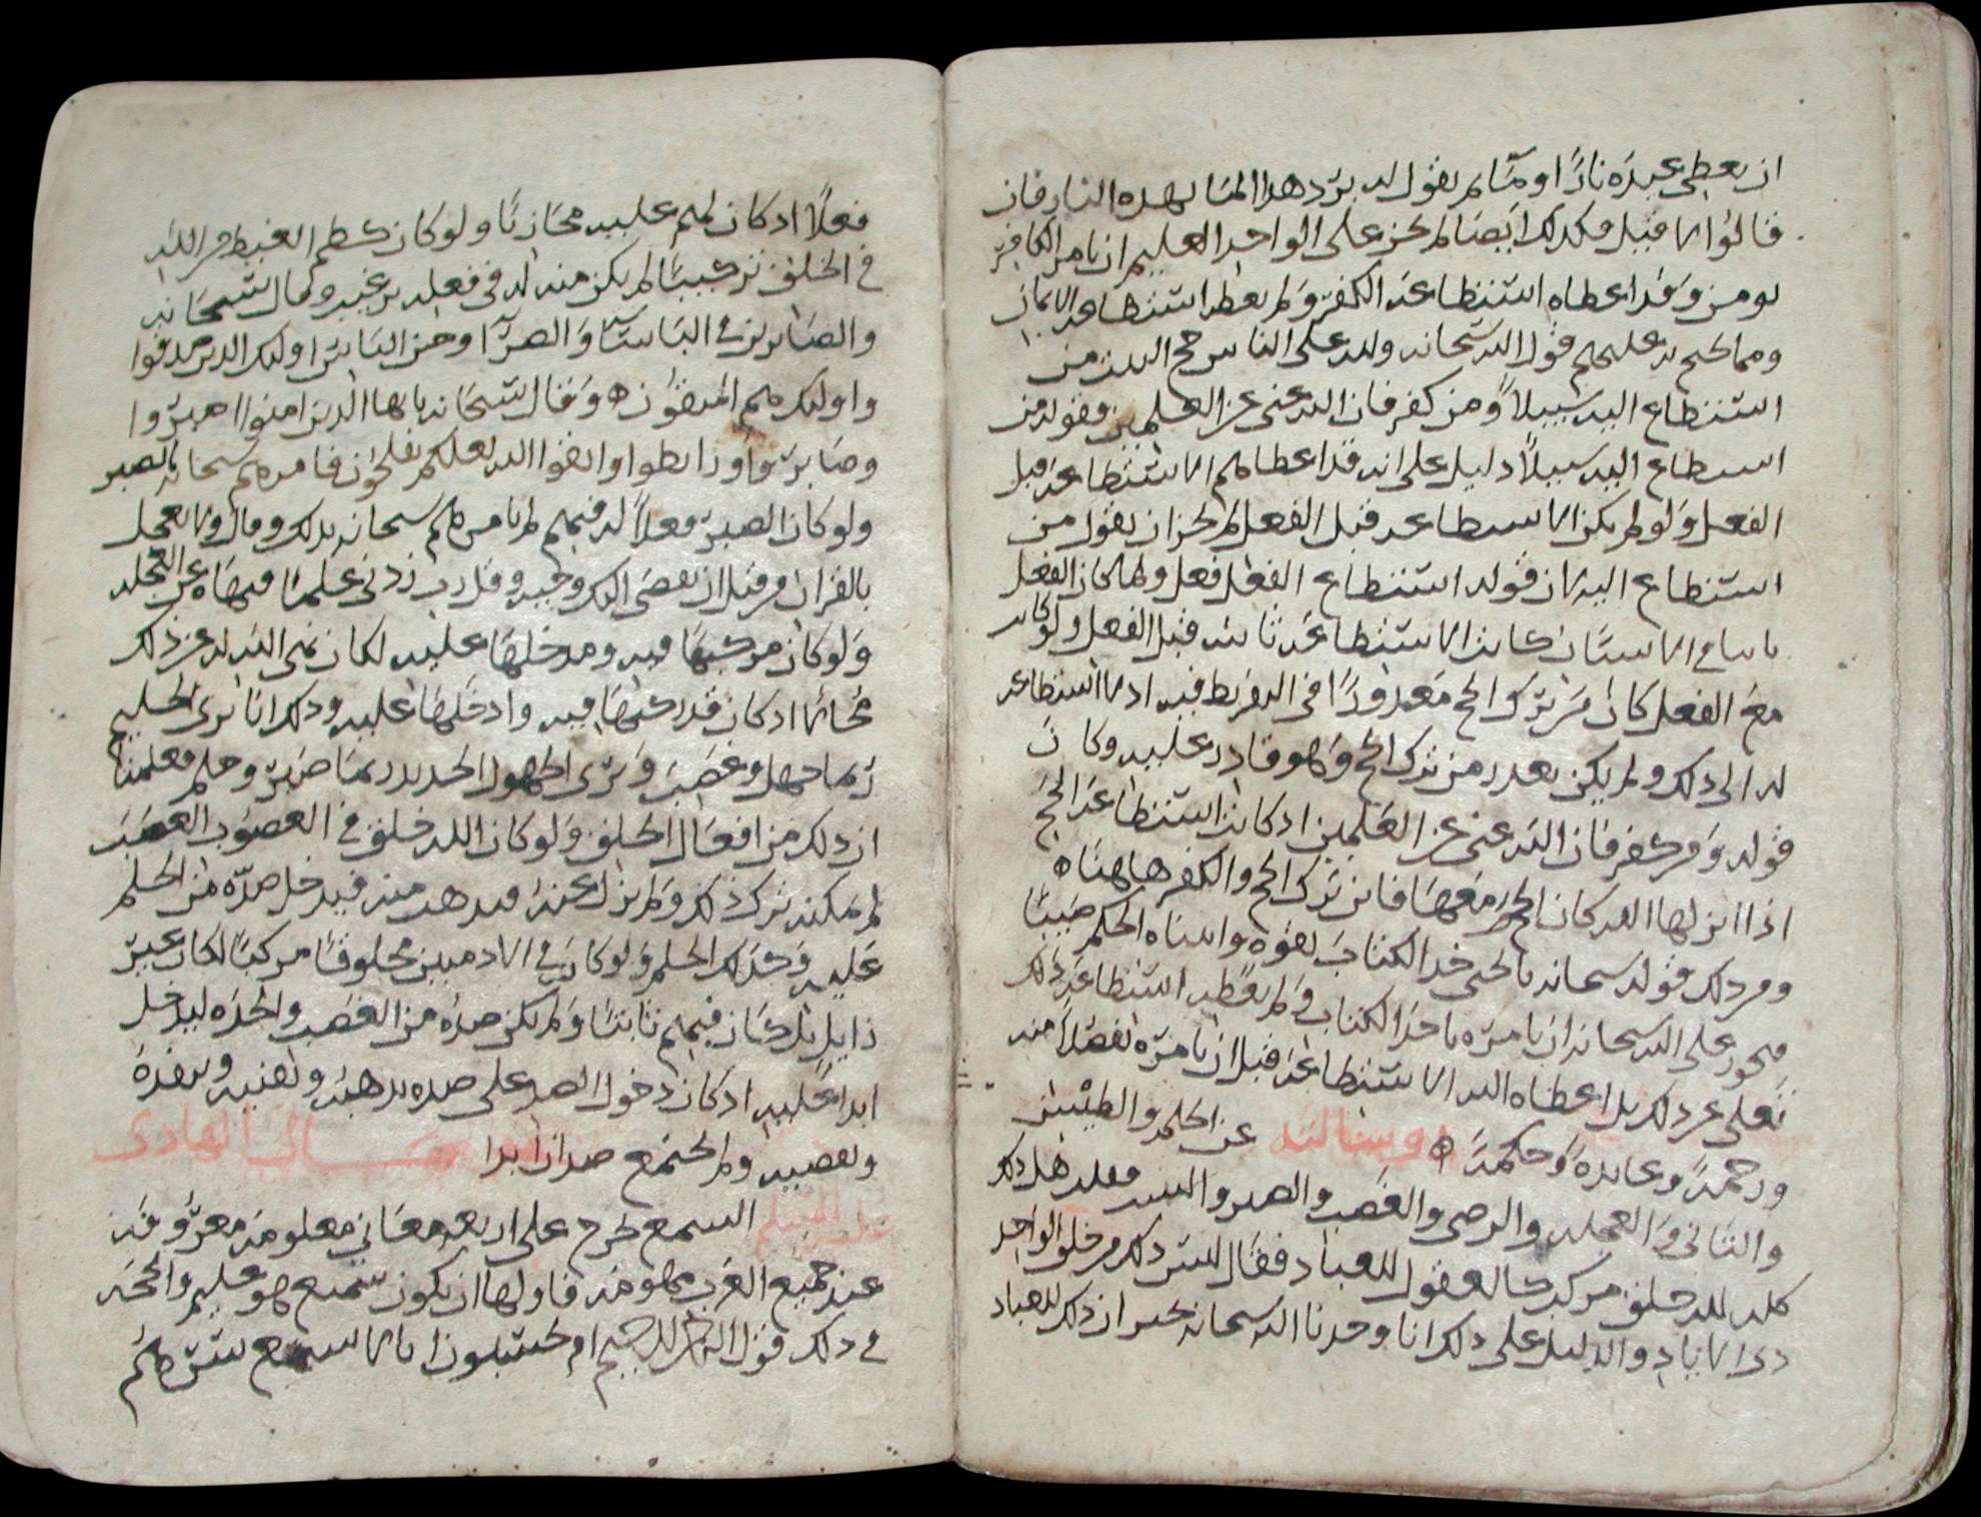 ان يعطى عبده نارا او مآ ثم يقول له برد هذا الما بهذه النار فان
قالوا لا قيل فكذلك ايضا لم يجز على الواحد العليم ان يامر الكافر
يومن وقد اعطاه استطاعة الكفر ولم يعطه استطاعة الايمان
ومما يحتج به عليهم قول الله سبحانه ولله على الناس حج البيت من
استطاع اليه سبيلاً ومن كفر فان الله غني عن العلمين فقوله من
استطاع اليه سبيلاً دليل على انه قد اعطاهم الاستطاعة قبل
الفعل ولو لم يكن الاستطاعة قبل الفعل لم يجز ان يقول من
استطاع اليه لان قوله استطاع الفعل فعل ولما كان الفعل
الانسان كانت الاستطاعة ثابته قبل الفعل ولو كانت
مع الفعل كان من ترك الحج معذورًا في التفريط فيه اذ لا استطاعة
له الى ذلك ولم يكن يعذر من ترك الحج وهو قادر عليه وكان
قوله ومن كفر فان الله غني عن العلمين اذ كانت استطاعة الحج
اذا انزلها الله كان الحج معها فاين ترك الحج والكفر هاهنا ه
ومن ذلك قوله سبحانه يا يحيى خذ الكتاب بقوه واتيناه الحكم صبيًا
فيجوز على الله سبحانه ان يامره باخذ الكتاب ولم يعطه استطاعة ذلك
تعلى عن ذلك بل اعطاه الله الاستطاعة قبل ان يامره تفضلاً منه
ورحمة وعايدة وحكمة ه وسالته عن الحلم والطيش
والتاني والعجله والرضى والغضب والصبر والسفه فقلت هل ذلك
كله لله خلق مركب كالعقول للعباد فقال ليس ذلك من خلق الواحد
ذي الاياد والدليل على ذلك انا وجدنا الله سبحانه يخبر ان ذلك للعباد
فعلاً اذ كان لهم عليه مجازيًا ولو كان كظم الغيظ من الله
في الخلق تركيبًا لم يكن منه له في فعله ترغيب وقال سبحانه
والصابرين في الباسآ والضرآ وحين الباس اوليك الذين صدقوا
واوليك هم المتقون ه وقال سبحانه يايها الذين امنوا اصبروا
وصابروا ورابطوا واتقوا الله لعلكم تفلحون فامرهم سبحانه بالصبر
ولو كان الصبر فعلاً له فيهم لم يامرهم سبحانه بذلك وقال ولا تعجل
بالقران من قبل ان يقضى اليك وحيه وقل رب زدني علمًا فنهاه عن العجله
ولو كان مركبها فيه ومدخلها عليه لكان نهي الله له عن ذلك
محالا اذ كان قد ركبها فيه وادخلها عليه وذلك انا نرى الحليم
ربما جهل وغضب ونرى الجهول الحديد ربما صبر وحلم فعلمنا
ان ذلك من افعال الخلق ولو كان الله خلق في الغضوب الغضب
لم يمكنه ترك ذلك ولم يزل عنه فيذهب منه فيدخل ضده من الحلم
عليه وكذلك الحلم ولو كان في الادميين مخلوقًا مركبًا لكان غير
زايل بل كان فيهم ثابتا ولم يكن ضده من الغضب والحده ليدخل
ابدا عليه اذ كان دخول الضد على ضده يذهبه وينفيه ويبعده
ويقصيه ولم يجتمع ضدان ابدا قال الهادي
عليه السلم السمع يخرج على اربعه معاني معلومة معروفه
عند جميع العرب مفهومة فاولها ان يكون سميع هو عليم والحجه
في ذلك قول الله ام يحسبون انا لا نسمع سرهم